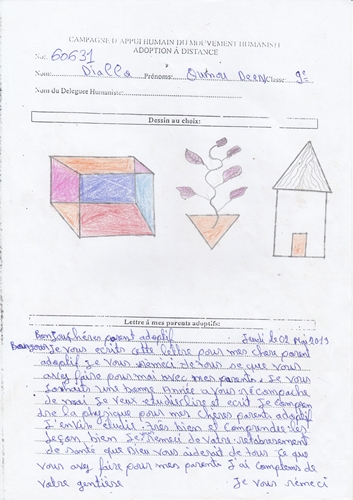 CAMPAGNE D'APPUI HUMAIN DU MOUVEMENT HUMANISTE
ADOPTION À DISTANCE
No: 60631
Nom: Diallo Prénoms: Oumou Deen Classe: 9e
Nom du Delegues Humaniste:
Dessin au choix:
Lettre à mes parents adoptifs:
Bonjour chères parent adoptif Jeudi le 02 Mai 2019
Bonjour Je vous ecrits cette lettre pour mes chere parent
adoptif Je vous remeci de tous se que vous
avez faire pour moi avec mes parents. Je vous
souhaits une bonne année a vous récompache
de moi Je veux etudié lire et ecrit Je compen
dre la physique pour mes chères parents adoptif
J'envir etudie très bien et comprendre les
leçon bien Je remeci de votre retabirsement
de santé que Dieu vous aiderait de tous ce que
vous avez faire pour mes parents J'ai comptens de
votre gentièsse Je vous rémeci